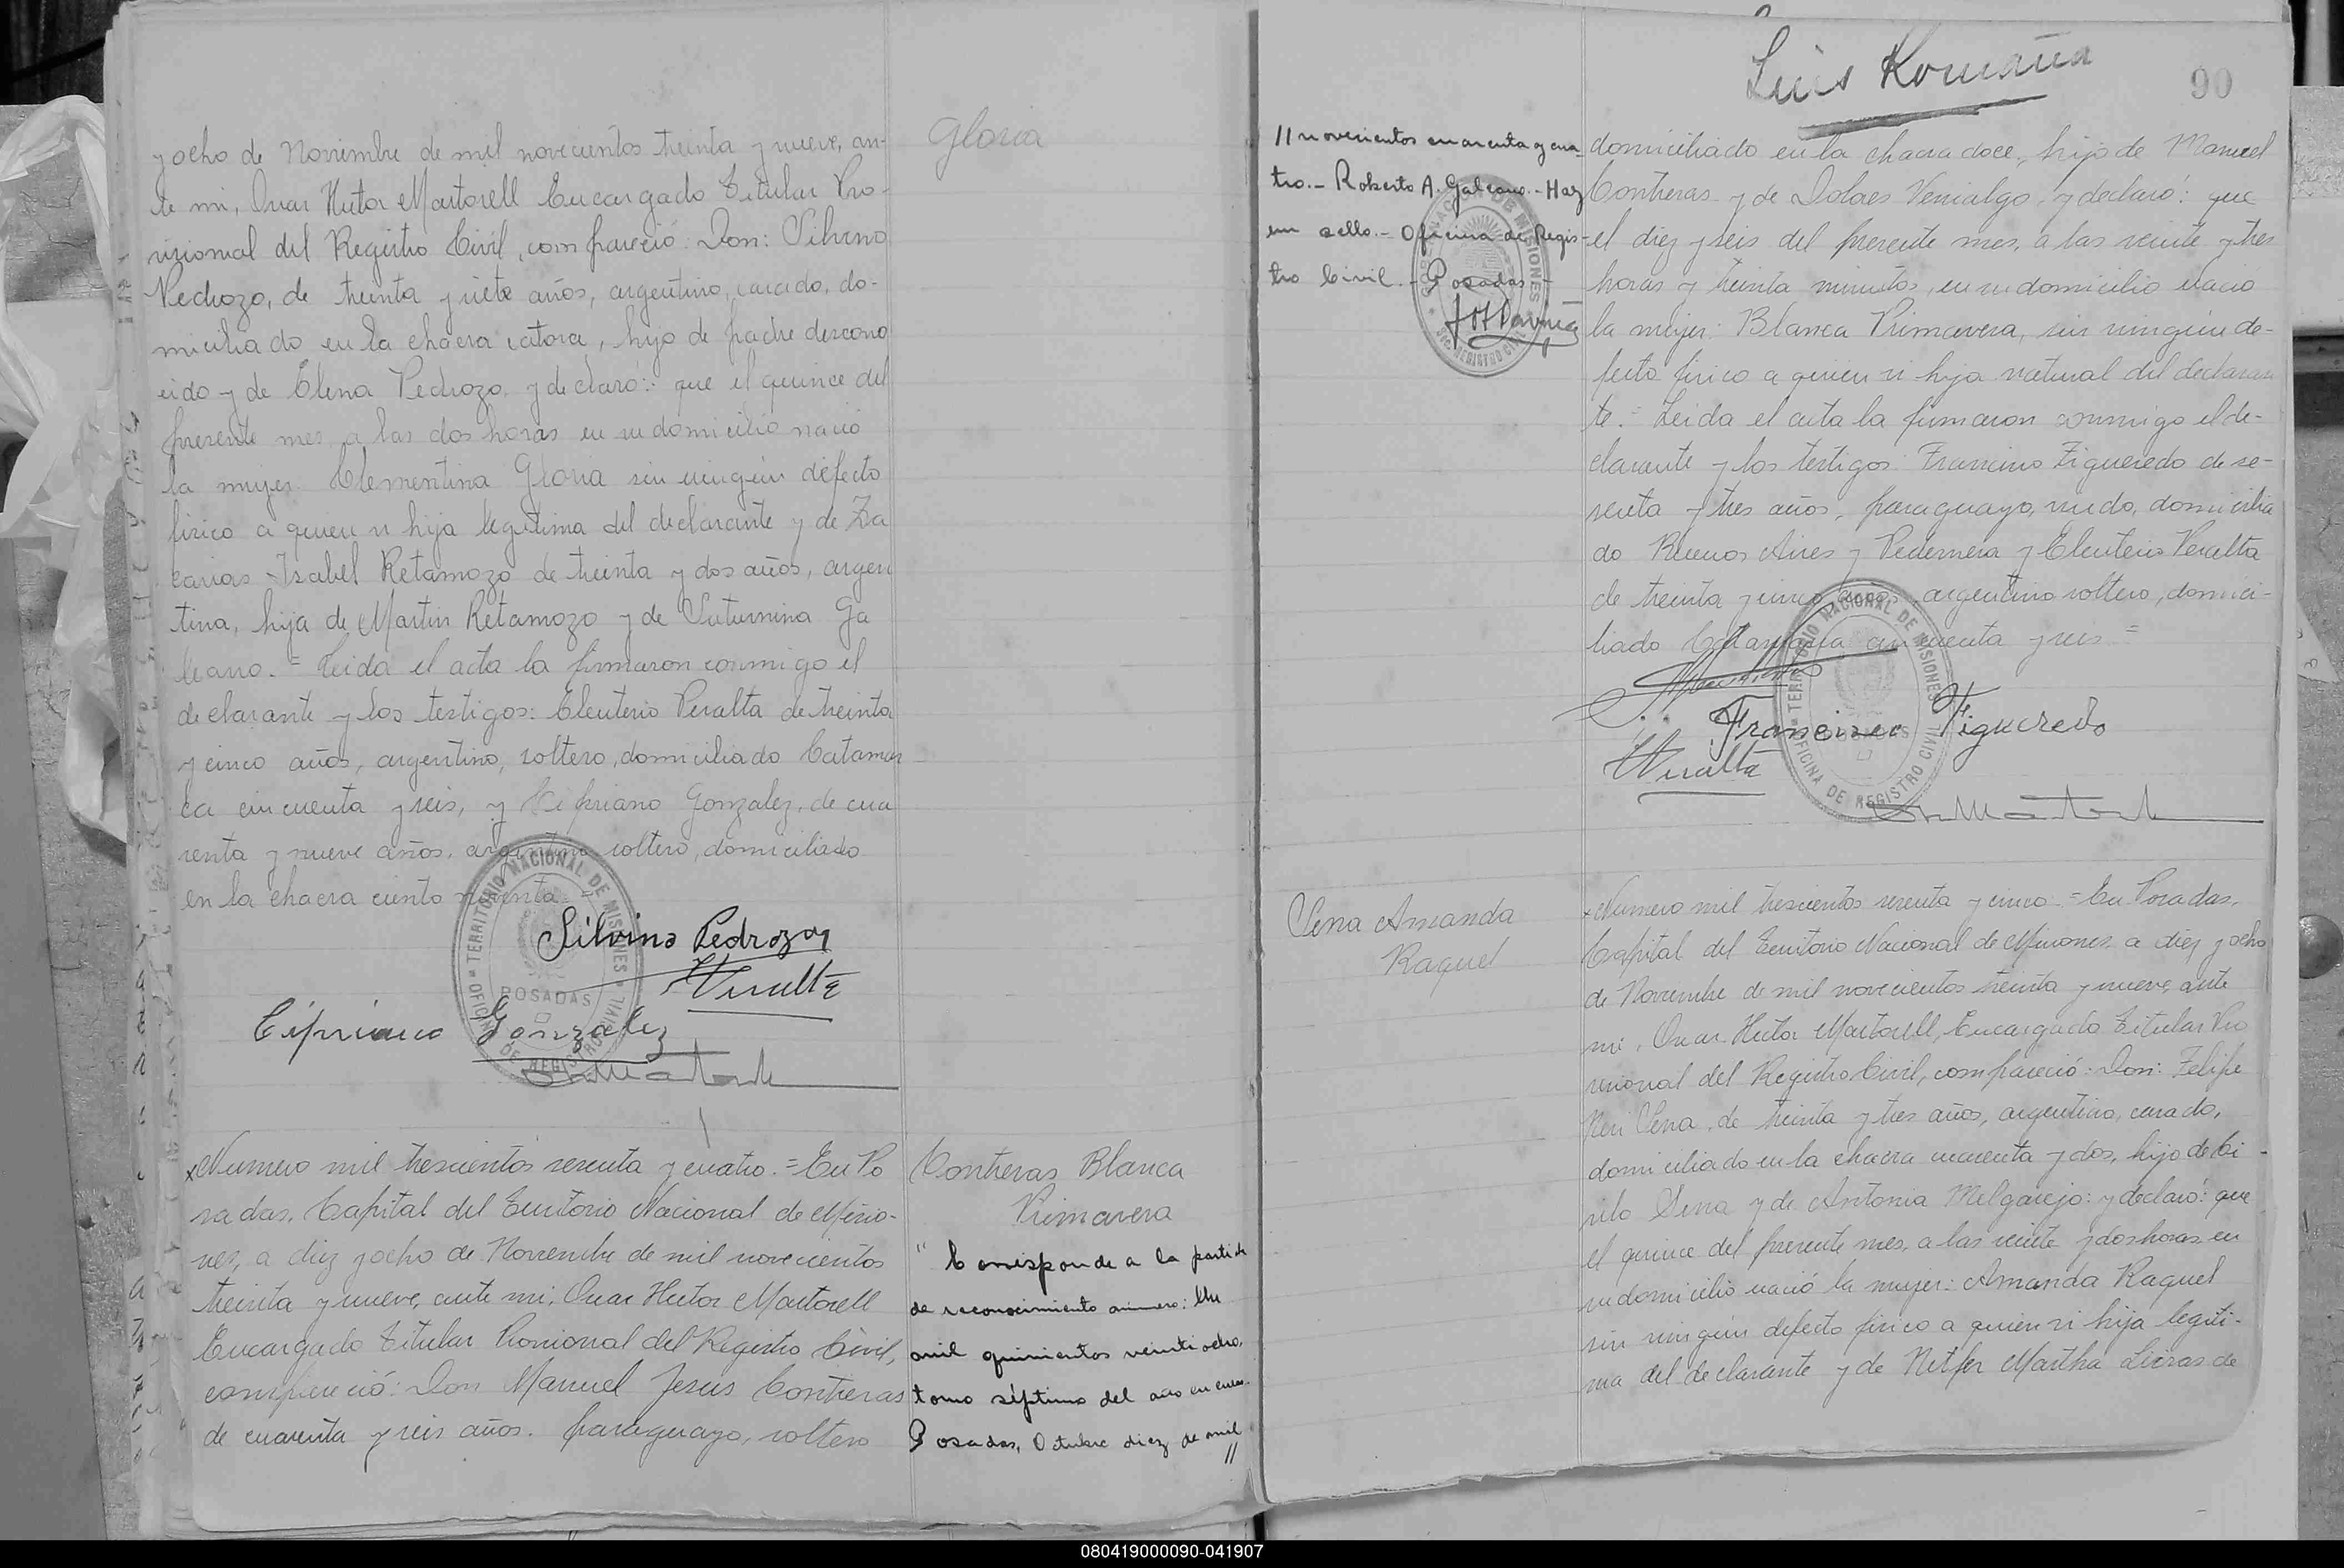 Gloria
y ocho de Noviembre de mil novecientos treinta y nueve, an-
te mi, Oscar Hector Martorell Encargado Titular Pro-
visional del Registro Civil, compareció: Don: Silvino
Pedrozo, de treinta y siete años, argentino, casado, do-
miciliado en la chacra catorce, hijo de padre descono
cido y de Elena Pedrozo, y declaró: que el quince del
presente mes, a las dos horas en su domicilio nació
la mujer Clementina Gloria sin ningún defecto
fisico a quien vi hija legitima del declarante y de Za
carias Isabel Retamozo de treinta y dos años, argen
tina, hija de Martin Retamozo y de Saturnina Ga
leano. = Leida el acta la firmaron conmigo el
declarante y los testigos: Eleuterio Peralta de treinta
y cinco años, argentino, soltero, domiciliado Catamar
ca cincuenta y seis, y Cipriano Gonzalez, de cua
renta y nueve años, argentino soltero, domiciliado
en la chacra ciento noventa =
TERRITORIO NACIONAL DE MISIONES
OFICINA DE REGISTRO CIVIL
POSADAS
Silvino Pedrozo
Peralta
Cipriano Gonzalez
Contreras Blanca
Primavera
x Numero mil trescientos sesenta y cuatro. = En Po
sadas, Capital del Territorio Nacional de Misio-
nes, a diez y ocho de Noviembre de mil novecientos
treinta y nueve, ante mi, Oscar Hector Martorell
Encargado Titular Provisional del Registro Civil,
compareció: Don Manuel Jesus Contreras
de cuarenta y seis años. paraguayo, soltero
" Corresponde a la partida
de reconocimiento número: Un
mil quinientos veintiocho,
tomo séptimo del año en curso.
Posadas, Octubre diez de mil
//
Luis Romaña
90
// novecientos cuarenta y cua-
tro.- Roberto A. Galeano.- Hay
un sello.- Oficina de Regis-
tro Civil.- Posadas -
GOBERNACION DE MISIONES
REGISTRO CIVIL
domiciliado en la chacra doce, hijo de Manuel
Contreras y de Dolores Venialgo, y declaró: que
el diez y seis del presente mes, a las veinte y tres
horas y treinta minutos, en su domicilio nació
la mujer: Blanca Primavera, sin ningún de-
fecto fisico a quien vi hija natural del declaran
te. = Leida el acta la firmaron conmigo el de-
clarante y los testigos: Francisco Figueredo de se-
senta y tres años, paraguayo, viudo, domicilia
do Buenos Aires y Pedernera y Eleuterio Peralta
de treinta y cinco años argentino soltero, domici-
liado Catamarca cincuenta y seis =
TERRITORIO NACIONAL DE MISIONES
OFICINA DE REGISTRO CIVIL
POSADAS
Francisco Figueredo
Peralta
Sena Amanda
Raquel
x Numero mil trescientos sesenta y cinco = En Posadas,
Capital del Territorio Nacional de Misiones a diez y ocho
de Noviembre de mil novecientos treinta y nueve, ante
mi, Oscar Hector Martorell, Encargado Titular Pro
visional del Registro Civil, compareció: Don: Felipe
Neri Sena, de treinta y tres años, argentino, casado,
domiciliado en la chacra cuarenta y dos, hijo de Ci-
rilo Sena y de Antonia Melgarejo: y declaró: que
el quince del presente mes, a las veinte y dos horas en
su domicilio nació la mujer: Amanda Raquel
sin ningún defecto fisico a quien vi hija legiti-
ma del declarante y de Martha de
080419000090-041907